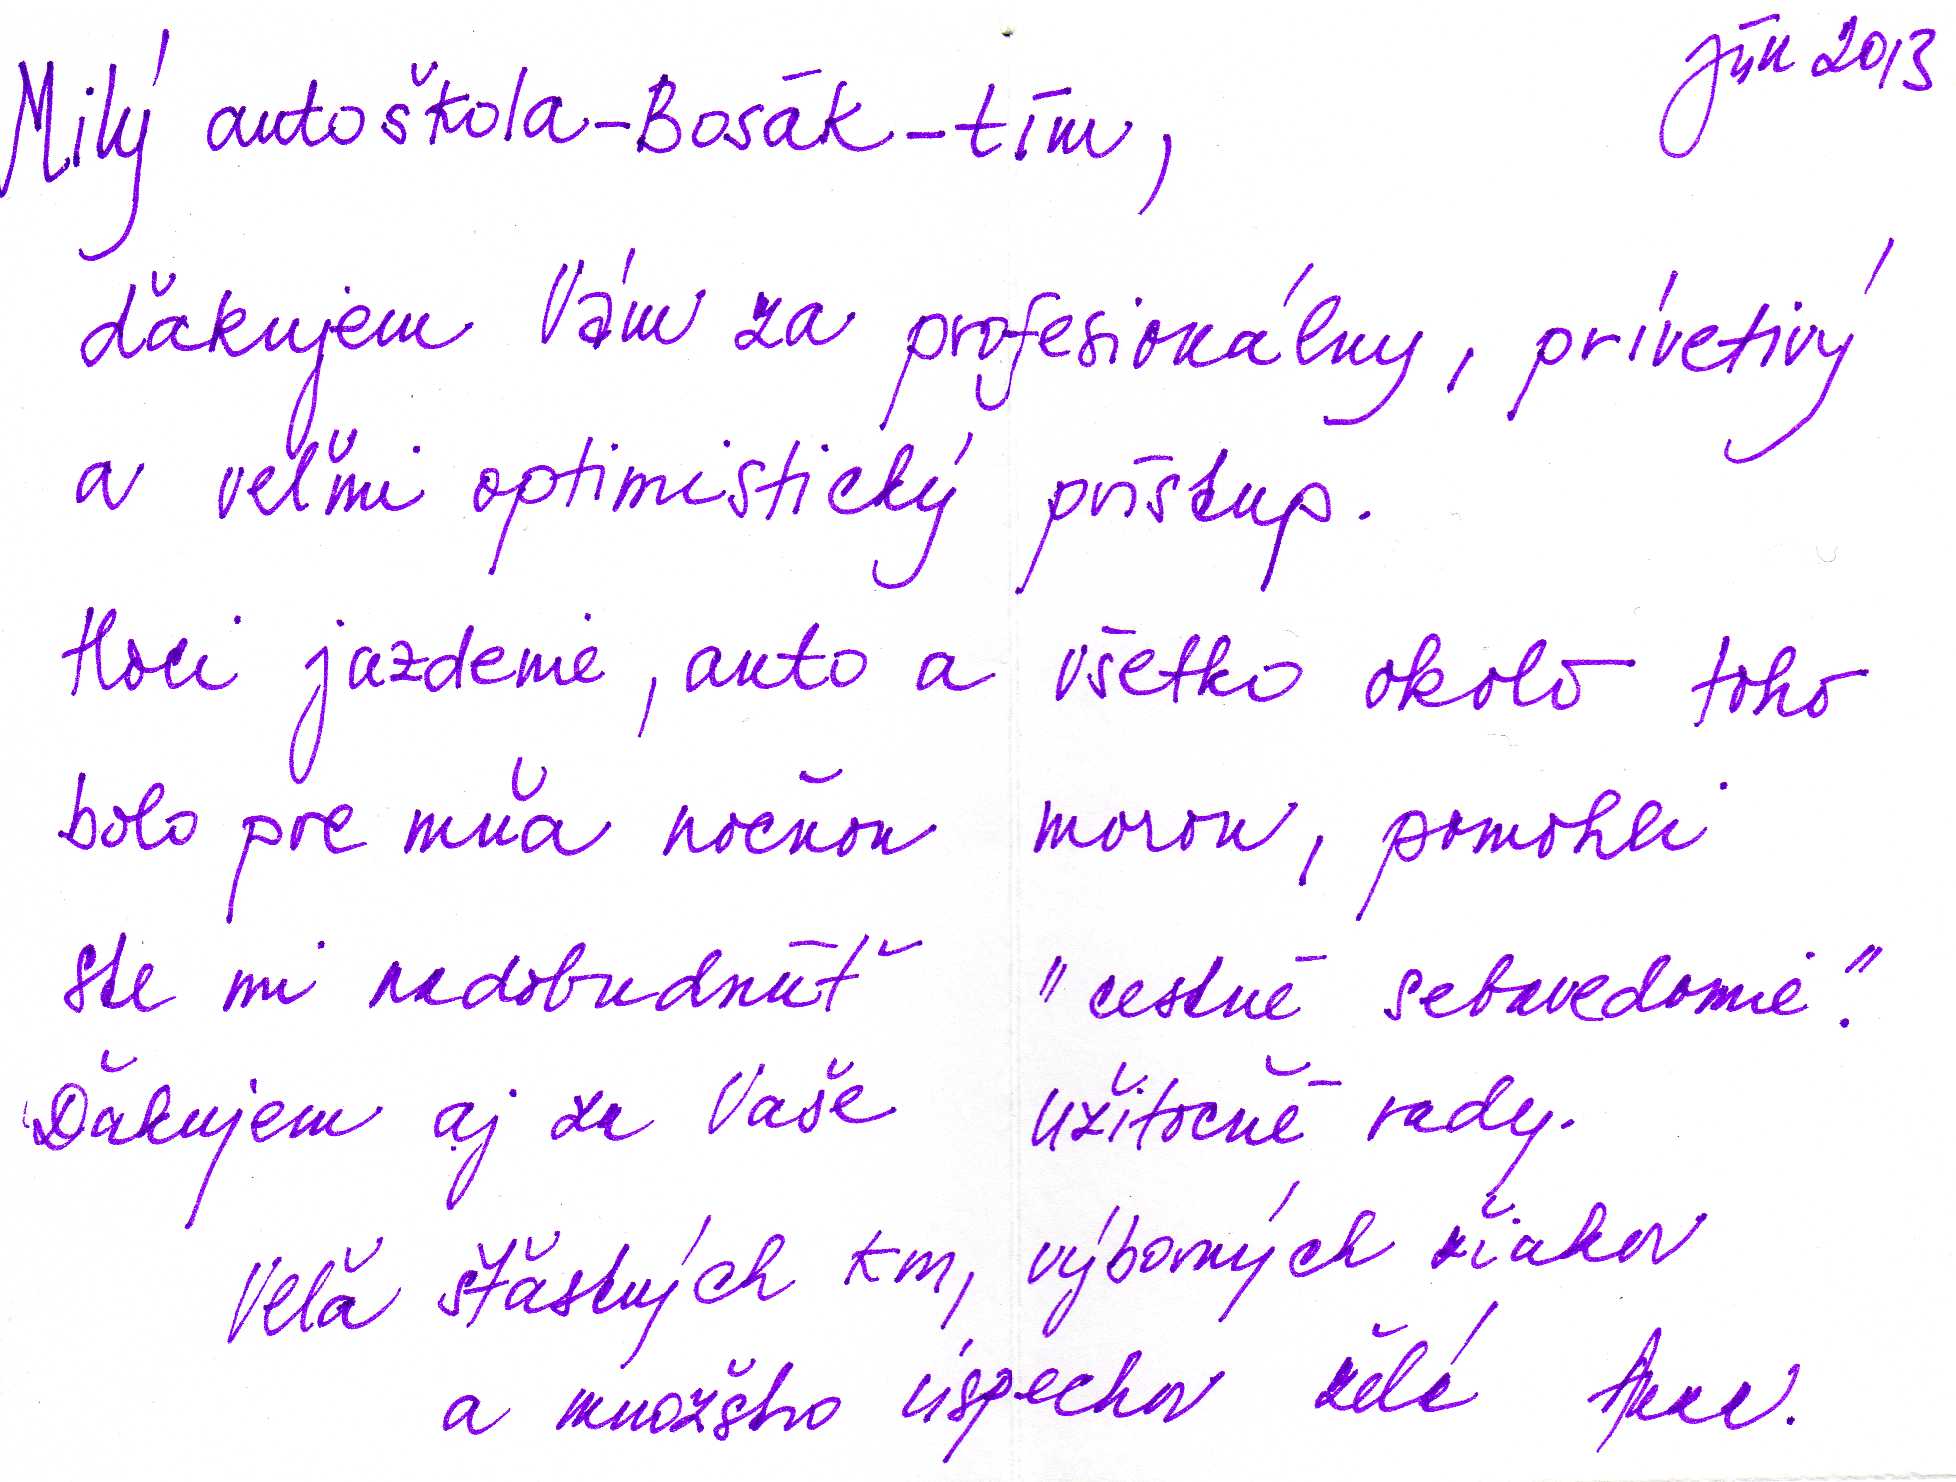 jún 2013
Milý autoškola-Bosák-tím,
ďakujem Vám za profesionálny, prívetivý
a veľmi optimistický prístup.
Hoci jazdenie, auto a všetko okolo toho
bolo pre mňa nočnou morou, pomohli
ste mi nadobudnúť "cestné sebavedomie".
Ďakujem aj za Vaše užitočné rady.
Veľa šťastných km, výborných žiakov
a množstvo úspechov želá Anna.